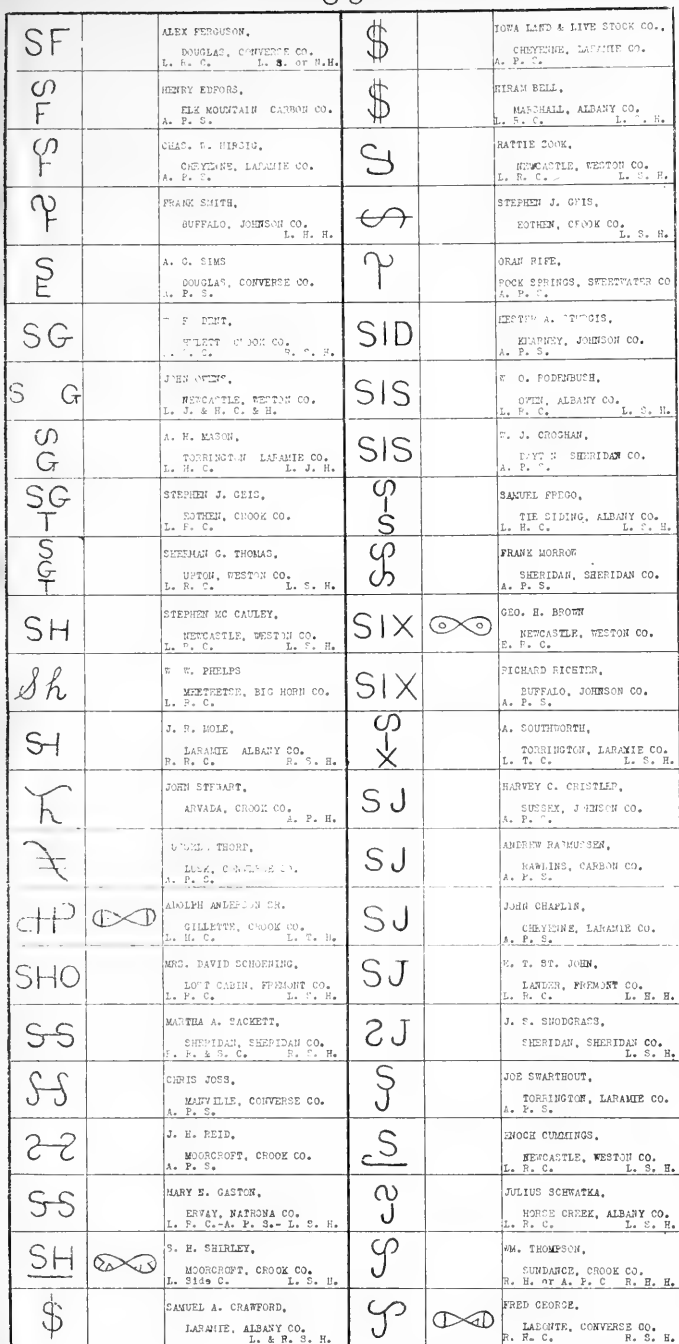 SF
ALEX FERGUSON,
DOUGLAS, CONVERSE CO.
L. R. C. L. S. or N.H.
S
F
HENRY EDFORS,
ELK MOUNTAIN CARBON CO.
A. P. S.
CHAS. HIRSIG,
CHEYENNE, LARAMIE CO.
A. P. S.
FRANK SMITH,
BUFFALO, JOHNSON CO.
L. H. H.
S
E
A. G. SIMS
DOUGLAS, CONVERSE CO.
A. P. S.
SG
DENT,
CROOK CO.
S G
JOHN OWENS,
NEWCASTLE, WESTON CO.
L. J. & H. C. & H.
S
G
A. H. MASON,
TORRINGTON LARAMIE CO.
L. H. C. L. J. H.
SG
T
STEPHEN J. GEIS,
EOTHEN, CROOK CO.
L. R. C.
S
G
T
SHERMAN G. THOMAS,
UPTON, WESTON CO.
L. R. C. L. S. H.
SH
STEPHEN MC CAULEY,
NEWCASTLE, WESTON CO.
L. R. C. L. S. H.
Sh
W. PHELPS
MEETEETSE, BIG HORN CO.
L. R. C.
SH
J. R. MOLE,
LARAMIE ALBANY CO.
R. R. C. R. S. H.
JOHN STEWART,
ARVADA, CROOK CO.
A. P. H.
THORP,
LUSK, CONVERSE CO.
A. P. S.
ADOLPH ANDERSON SR.
GILLETTE, CROOK CO.
L. H. C. L. T. H.
SHO
MRS. DAVID SCHOENING,
LOST CABIN, FREMONT CO.
L. R. C. L. S. H.
S-S
MARTHA A. SACKETT,
SHERIDAN, SHERIDAN CO.
R. R. & S. C. R. S. H.
CHRIS JOSS,
MANVILLE, CONVERSE CO.
A. P. S.
J. H. REID,
MOORCROFT, CROOK CO.
A. P. S.
S-S
MARY E. GASTON,
ERVAY, NATRONA CO.
L. R. C.-A. P. S.- L. S. H.
SH
S. H. SHIRLEY,
MOORCROFT, CROOK CO.
L. Side C. L. S. H.
$
SAMUEL A. CRAWFORD,
LARAMIE, ALBANY CO.
L. & R. S. H.
$
IOWA LAND & LIVE STOCK CO.,
CHEYENNE, LARAMIE CO.
A. P. S.
$
HIRAM BELL,
MARSHALL, ALBANY CO.
L. R. C. L. S. H.
HATTIE COOK,
NEWCASTLE, WESTON CO.
L. R. C. L. S. H.
STEPHEN J. GEIS,
EOTHEN, CROOK CO.
L. S. H.
ORAN RIFE,
ROCK SPRINGS, SWEETWATER CO
A. P. S.
SID
HESTER A. STURGIS,
KEARNEY, JOHNSON CO.
A. P. S.
SIS
O. RODENBUSH,
OWEN, ALBANY CO.
L. R. C. L. S. H.
SIS
J. CROGHAN,
DAYTON SHERIDAN CO.
A. P. S.
S
I
S
SAMUEL FREGO,
TIE SIDING, ALBANY CO.
L. H. C. L. S. H.
FRANK MORROW
SHERIDAN, SHERIDAN CO.
A. P. S.
SIX
GEO. H. BROWN
NEWCASTLE, WESTON CO.
SIX
RICHARD RICHTER,
BUFFALO, JOHNSON CO.
A. P. S.
S
I
X
A. SOUTHWORTH,
TORRINGTON, LARAMIE CO.
L. T. C. L. S. H.
SJ
HARVEY C. CRISTLER,
SUSSEX, JOHNSON CO.
A. P. S.
SJ
ANDREW RASMUSSEN,
RAWLINS, CARBON CO.
A. P. S.
SJ
JOHN CHAPLIN,
CHEYENNE, LARAMIE CO.
A. P. S.
SJ
T. ST. JOHN,
LANDER, FREMONT CO.
L. R. C. L. H. H.
SJ
J. S. SNODGRASS,
SHERIDAN, SHERIDAN CO.
L. S. H.
S
J
JOE SWARTHOUT,
TORRINGTON, LARAMIE CO.
A. P. S.
ENOCH CUMMINGS,
NEWCASTLE, WESTON CO.
L. R. C. L. S. H.
JULIUS SCHWATKA,
HORSE CREEK, ALBANY CO.
L. R. C. L. S. H.
WM. THOMPSON,
SUNDANCE, CROOK CO.
R. H. or A. P. C R. H. H.
FRED GEORGE,
LABONTE, CONVERSE CO.
R. R. C. R. S. H.